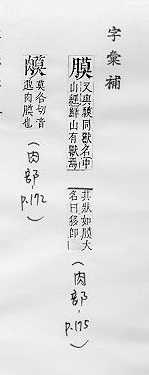 字彙補
膜
又與獏同獸名中
山經鮮山有獸焉
其狀如膜大
名曰移即
(肉部, p.175)
莫各切音
肉膜也
(肉部, p.172)